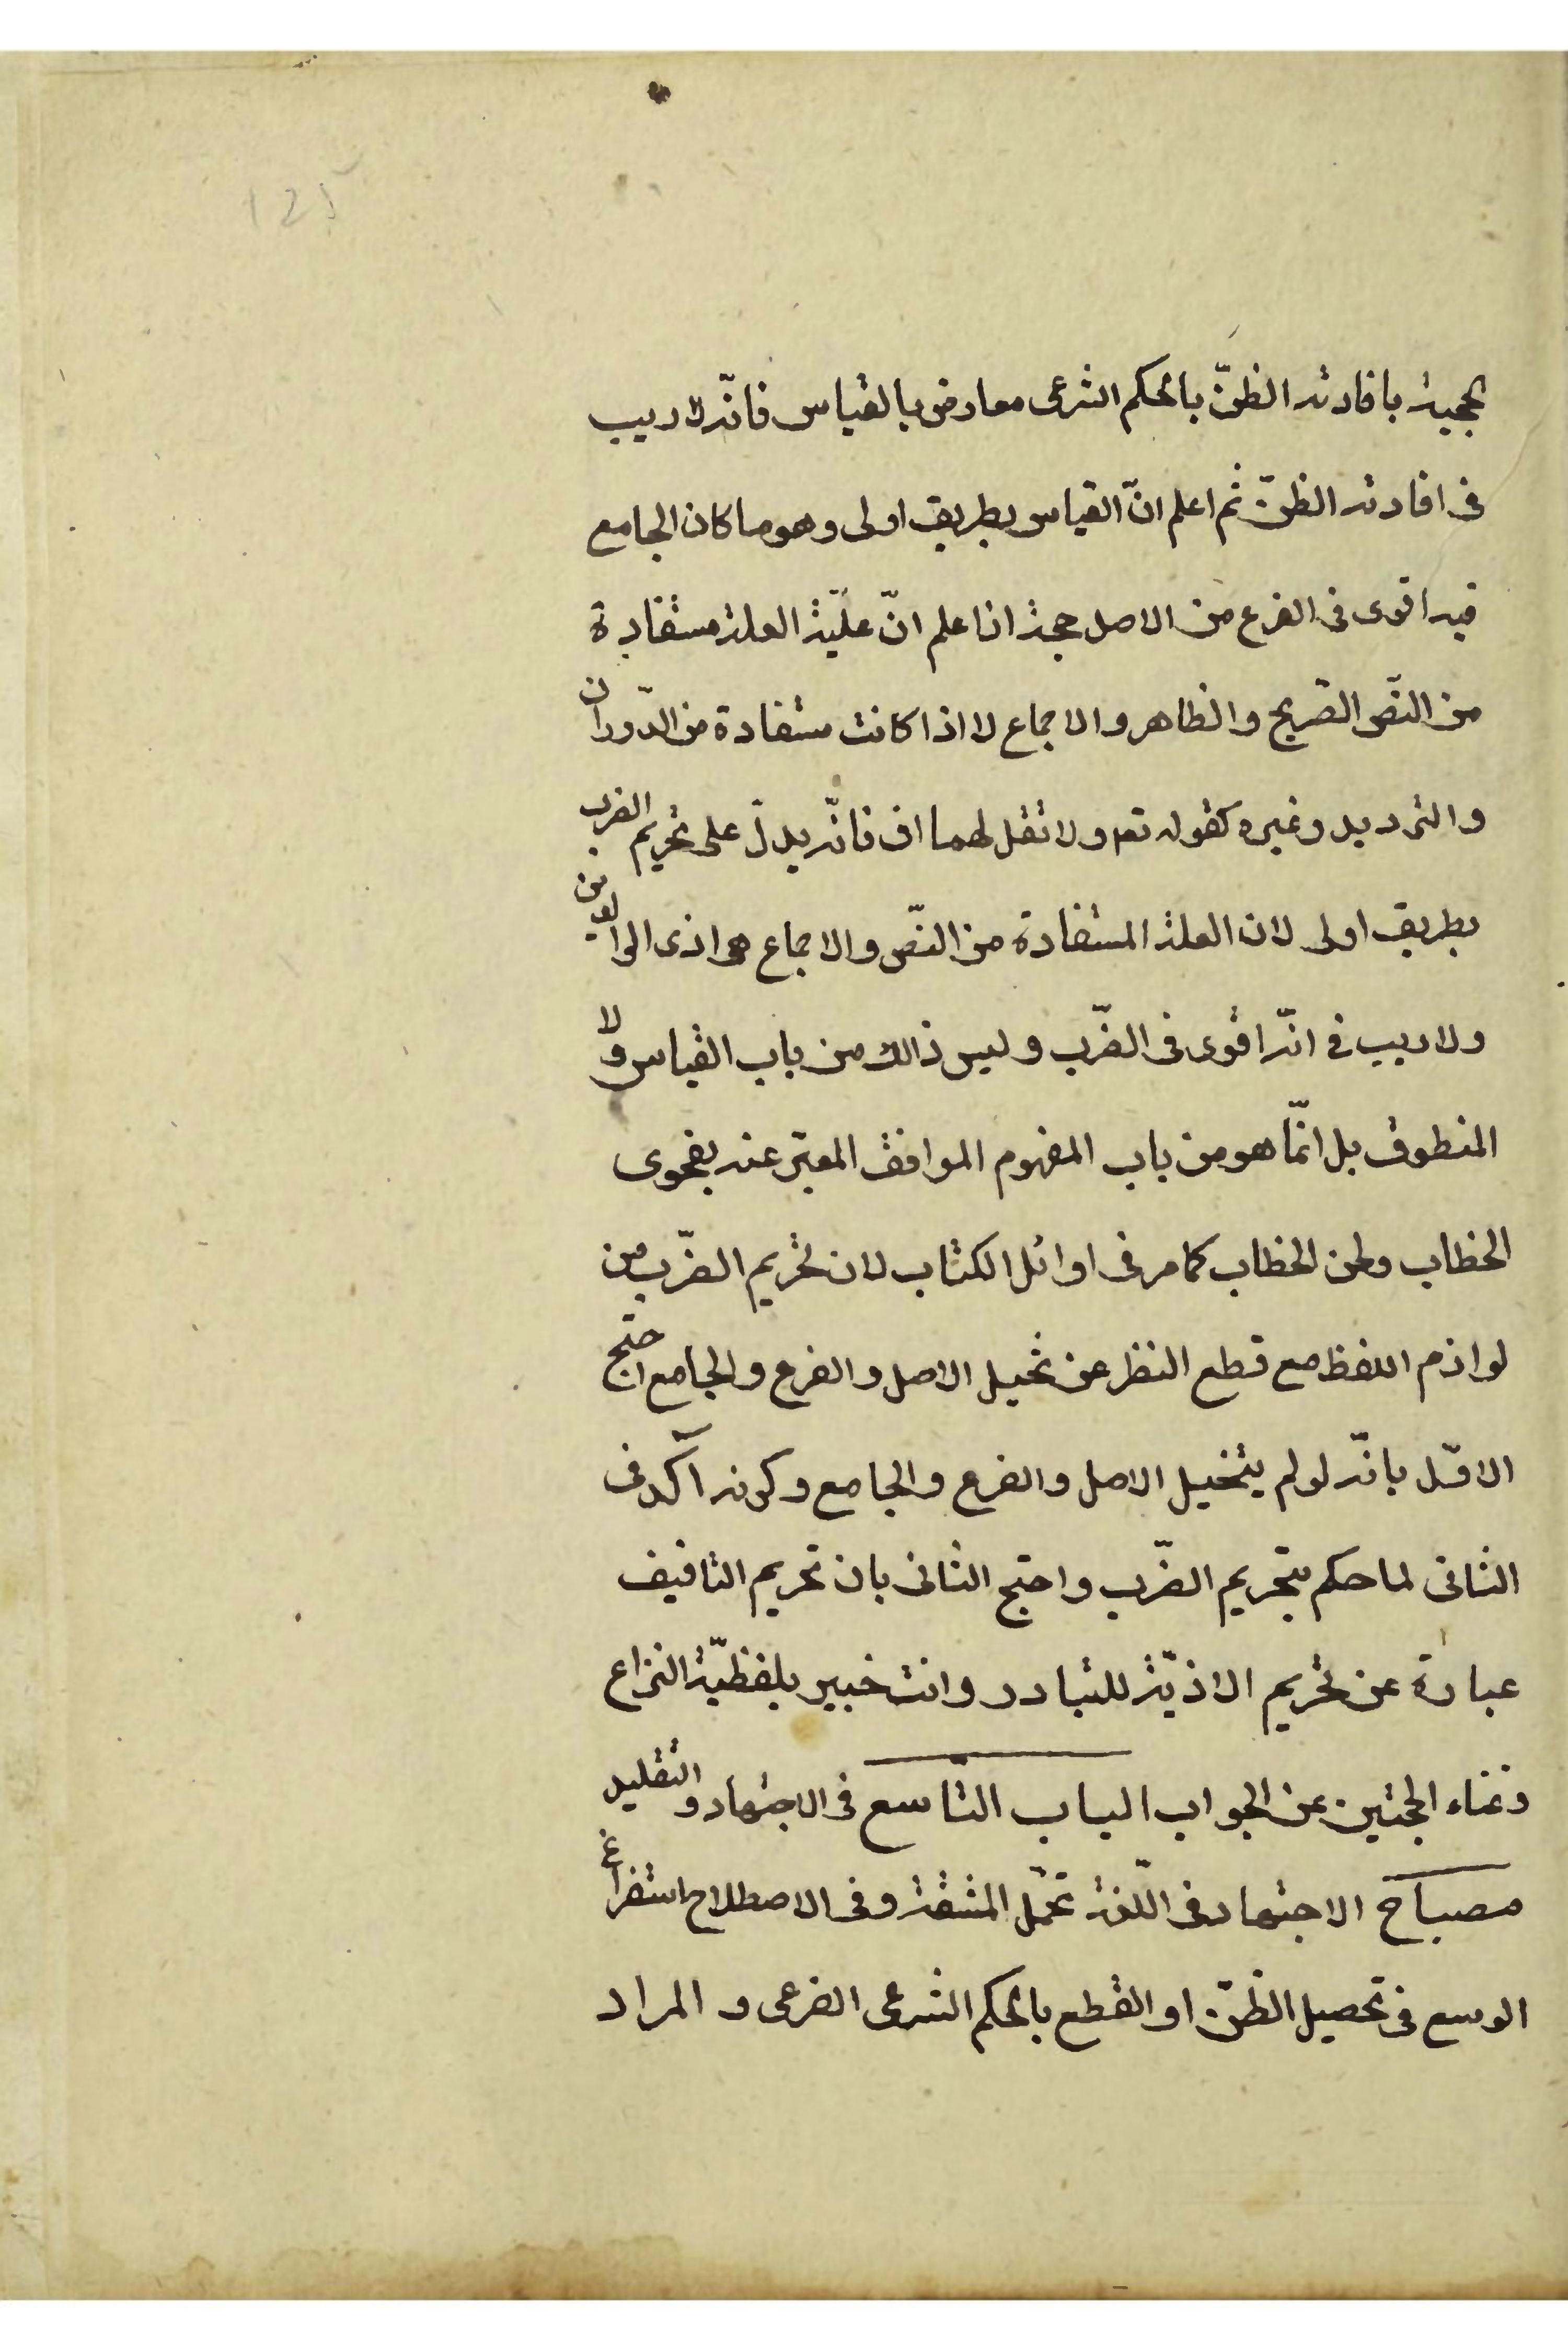 125
بحجية بافادته الظنّ بالحكم الشرعى معارض بالقياس فانّه لا ريب
فى افادته الظنّ ثم اعلم انّ القياس بطريق اولى وهو ما كان الجامع
فيه اقوى فى الفرع من الاصل حجة اذا علم انّ علّيّة العلة مستفادة
من النصّ الصّريح والظاهر والاجماع لا اذا كانت مستفادة من الدّوران
والترديد وغيره كقوله تعه ولا تقل لهما اف فانّه يدلّ على تحريم الضرب
بطريق اولى لان العلة المستفادة من النصّ والاجماع هو اذى الوالدين
ولا ريب فى انّه اقوى فى الضّرب وليس ذالك من باب القياس ولا
المنطوق بل انّما هو من باب المفهوم الموافق المعبّر عنه بفحوى
الخطاب ولحن الخطاب كما مر فى اوائل الكتاب لان تحريم الضّرب من
لوازم اللفظ مع قطع النظر عن تخيل الاصل والفرع والجامع احتج
الاوّل بانّه لو لم يتخيل الاصل والفرع والجامع وكونه آكد فى
الثانى لما حكم بتحريم الضّرب واحتج الثانى بان تحريم التافيف
عبارة عن تحريم الاذيّة للتبادر وانت خبير بلفظيّة النزاع
وغناء الحجتين عن الجواب الباب التّاسع فى الاجتهاد والتقليد
مصباح الاجتهاد فى اللّغة تحمّل المشقة وفى الاصطلاح استفراغ
الوسع فى تحصيل الظنّ او القطع بالحكم الشرعى الفرعى والمراد